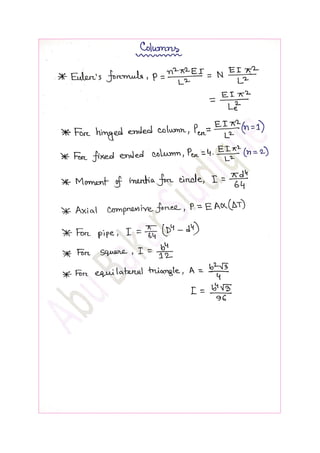 Columns
* Euler's formula, P = n²π²EI/L² = N EIπ²/L²
= EIπ²/Le²
* For hinged ended column, Pcr = EIπ²/L² (n=1)
* For fixed ended column, Pcr = 4. EIπ²/L² (n=2)
* Moment of inertia for circle, I = πd⁴/64
* Axial compressive force, P = EAα(ΔT)
* For pipe, I = π/64 (D⁴ – d⁴)
* For square, I = b⁴/12
* For equilateral triangle, A = b²√3/4
I = b⁴√3/96
Abu Bakar Siddique